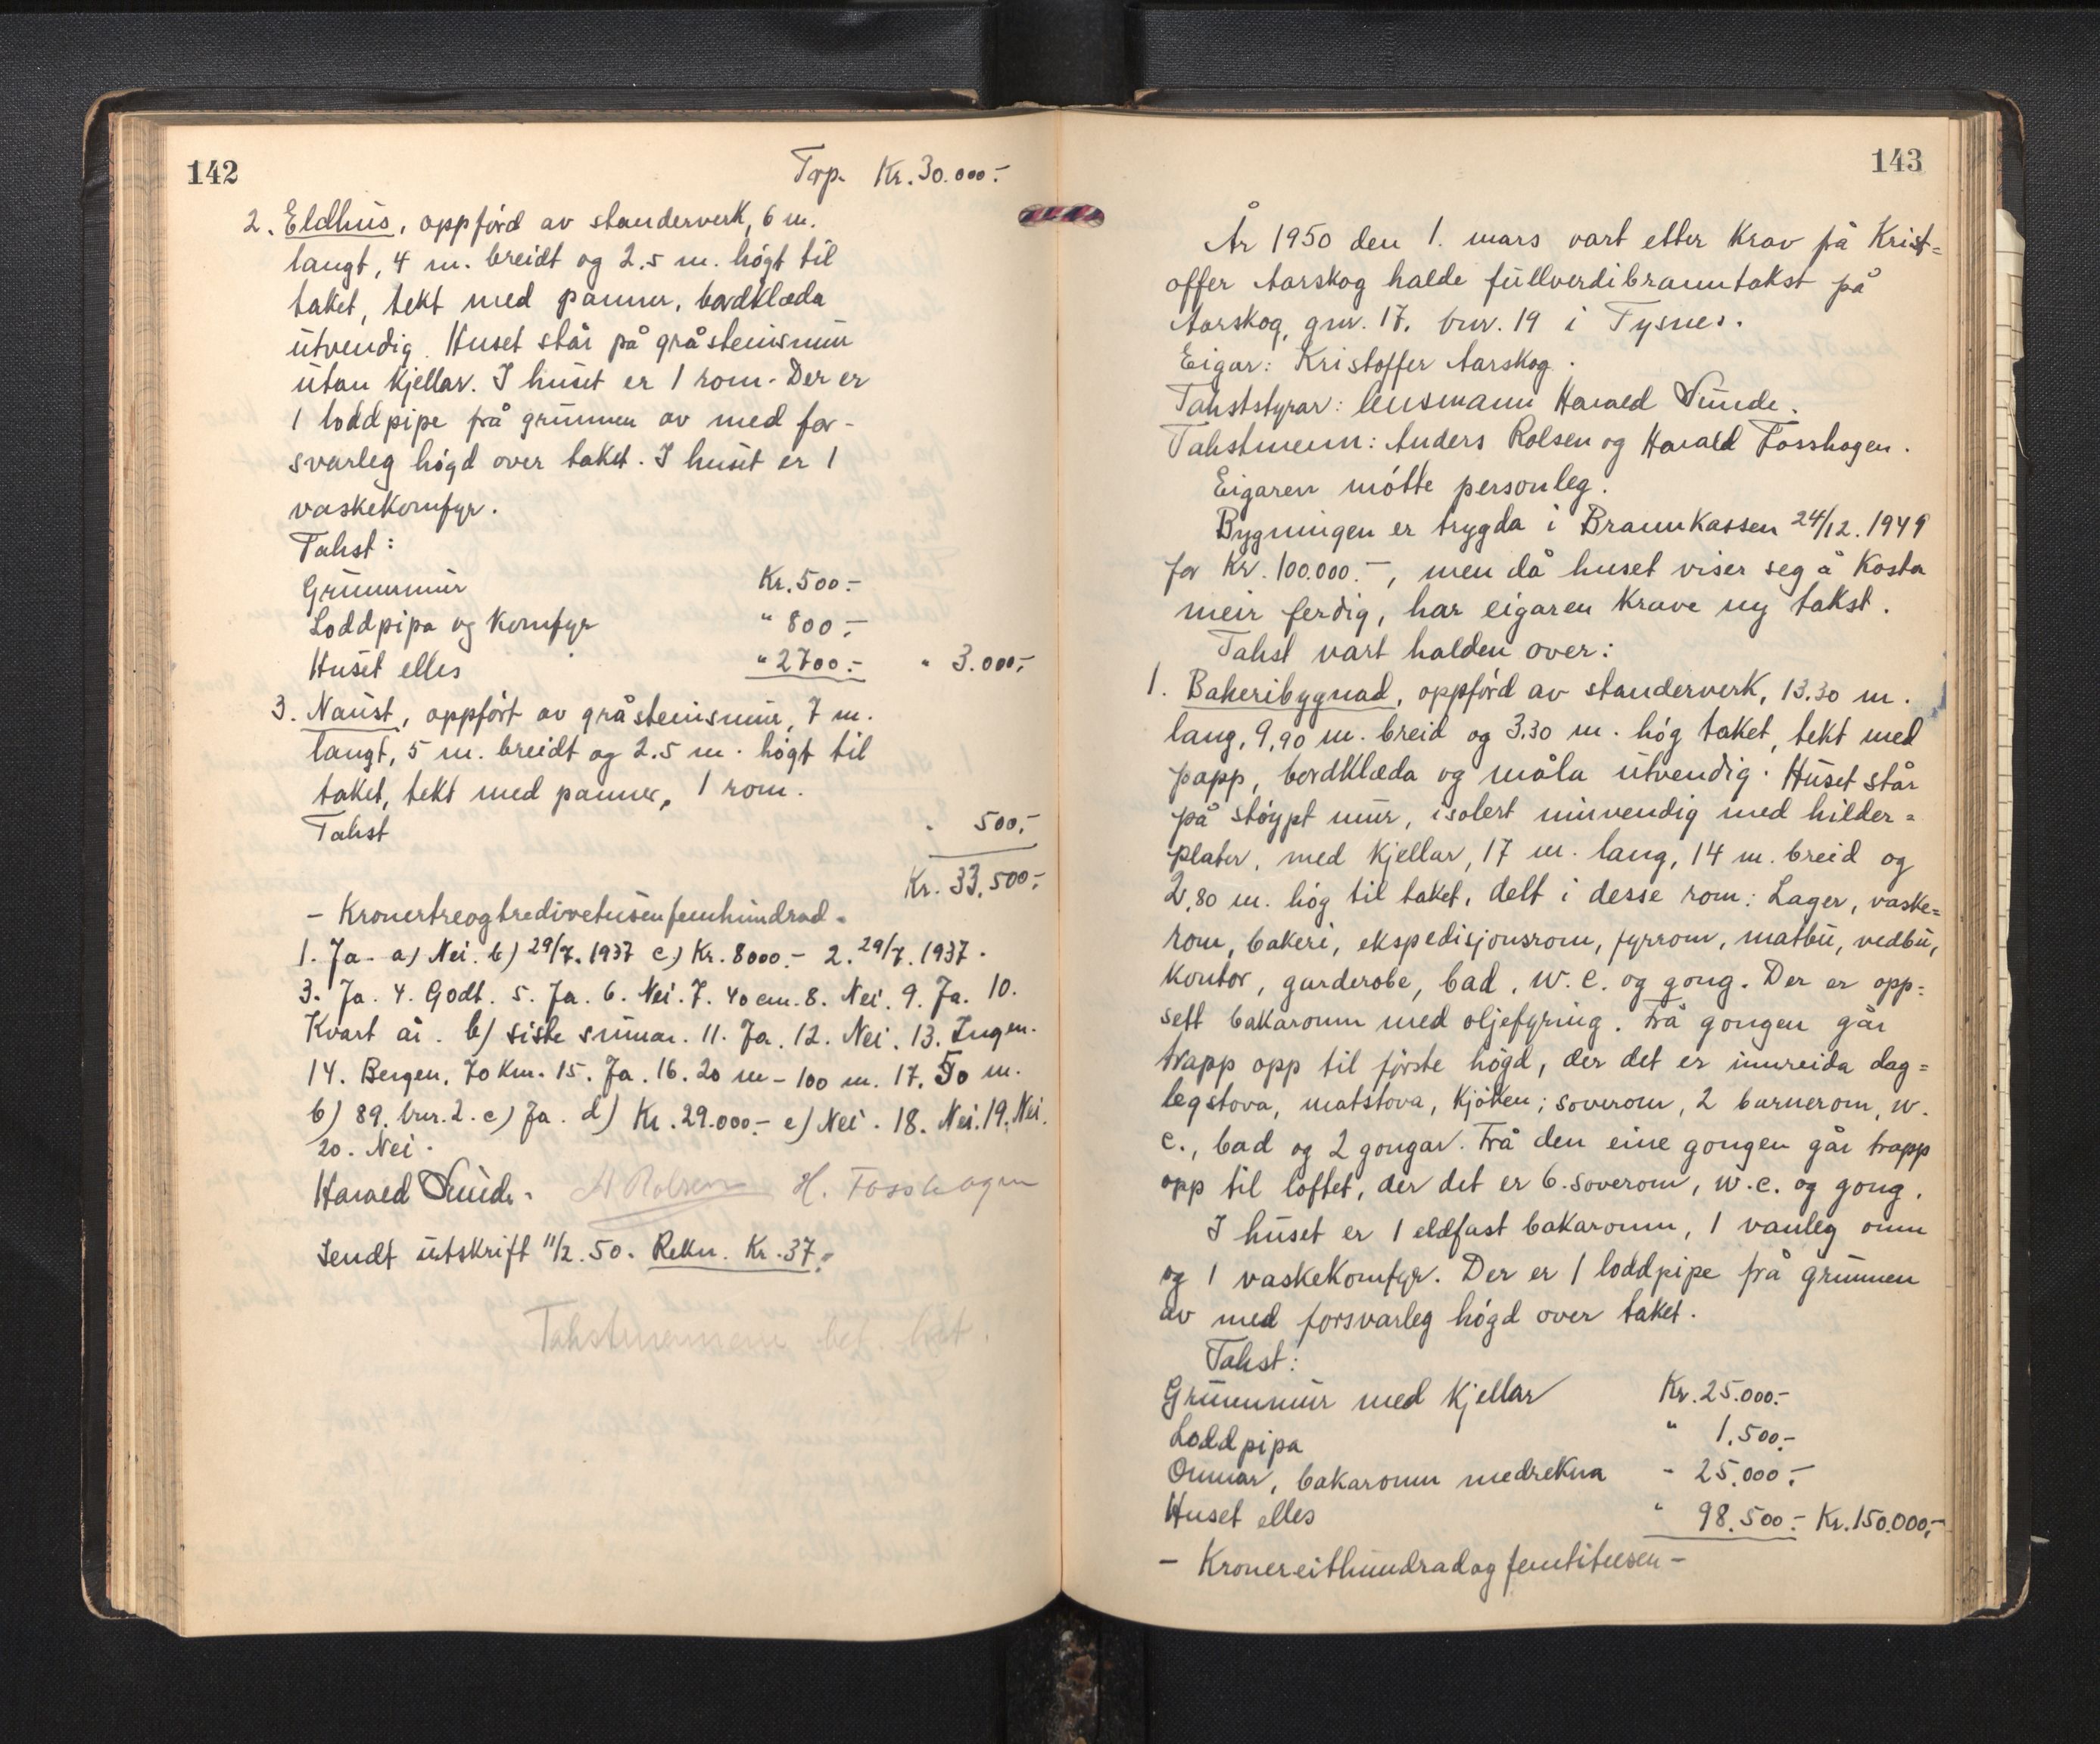 142
Trp. Kr. 30.000.-
2. Eldhus, oppførd av standerverk, 6 m.
langt, 4 m. breidt og 2.5 m. høgt til
taket, tekt med panner, bordklæda
utvendig. Huset står på gråsteinsmur
utan kjellar. I huset er 1 rom. Der er
1 loddpipe frå grunnen av med for-
svarleg høgd over taket. I huset er 1
vaskekomfyr.
Takst:
Grunnmur Kr. 500.-
Loddpipa og komfyr " 800.-
Huset elles " 2700.- " 3.000,-
3. Naust, oppført av gråsteinsmur, 7 m.
langt, 5 m. breidt og 2.5 m. høgt til
taket, tekt med panner, 1 rom.
Takst " 500,-
Kr. 33.500.-
- Kronertreogtredivetusenfemhundrad -
1. Ja. a) Nei. b) 29/7. 1937 c) Kr. 8000.- 2. 29/7. 1937.
3. Ja. 4. Godt. 5. Ja. 6. Nei. 7. 40 cm. 8. Nei. 9. Ja. 10.
Kvart år. b) siste sumar. 11. Ja. 12. Nei. 13. Ingen.
14. Bergen, 70 km. 15. Ja. 16. 20 m - 100 m. 17. 50 m.
b) 89. bnr. 2. c) Ja. d) Kr. 29.000.- e) Nei. 18. Nei. 19. Nei.
20. Nei.
Harald Sunde. A Rolsen H. Fosshagen
Sendt utskrift 11/2. 50. Rekn. Kr. 37.-
Takstmennene bet.
143
År 1950 den 1. mars vart etter krav på Krist=
offer Aarskog halde fullverdibranntakst på
Aarskog, gnr. 17. bnr. 19 i Tysnes.
Eigar: Kristoffer Aarskog.
Takststyrar: lensmann Harald Sunde.
Takstmenn: Anders Rolsen og Harald Fosshagen.
Eigaren møtte personleg.
Bygningen er trygda i Brannkassen 24/12. 1949
for Kr. 100.000.-, men då huset viser seg å kosta
meir ferdig, har eigaren krave ny takst.
Takst vart halden over:
1. Bakeribygnad, oppførd av standerverk, 13.30 m.
lang, 9,90 m. breid og 3.30 m. høg taket, tekt med
papp, bordklæda og måla utvendig. Huset står
på støypt mur, isolert innvendig med hilder=
plater, med kjellar, 17 m. lang, 14 m. breid og
2,80 m. høg til taket, delt i desse rom: Lager, vaske=
rom, bakeri, ekspedisjonsrom, fyrrom, matbu, vedbu,
kontor, garderobe, bad, w.c. og gong. Der er opp=
sett bakaromn med oljefyring. Frå gongen går
trapp opp til første høgd, der det er innreida dag=
legstova, matstova, kjøken, soverom, 2 barnerom, w.
c., bad og 2 gongar. Frå den eine gongen går trapp
opp til loftet, der det er 6. soverom, w.c. og gong.
I huset er 1 eldfast bakaromn, 1 vanleg omn
og 1 vaskekomfyr. Der er 1 loddpipe frå grunnen
av med forsvarleg høgd over taket.
Takst:
Grunnmur med kjellar Kr. 25.000.-
Loddpipa " 1.500.-
Omnar, bakaromn medrekna - 25.000.-
Huset elles " 98.500.- Kr. 150.000,-
- Kronereithundradogfemtitusen -